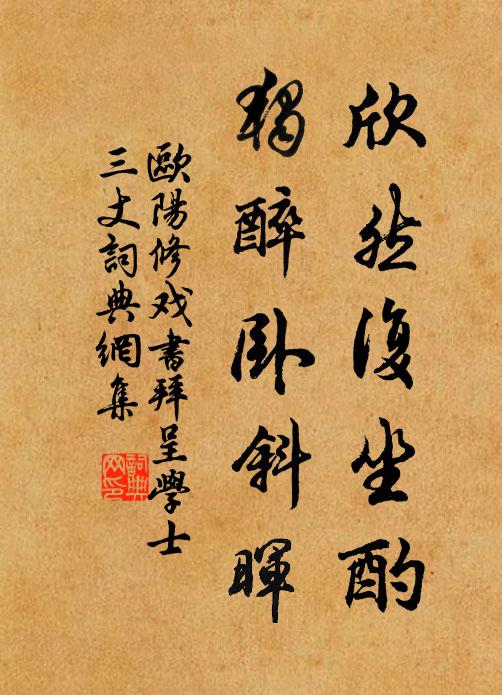 欣然復坐酌
獨醉臥斜暉
歐陽修戏書拜呈學士
三丈詞典網集
詞典
网印